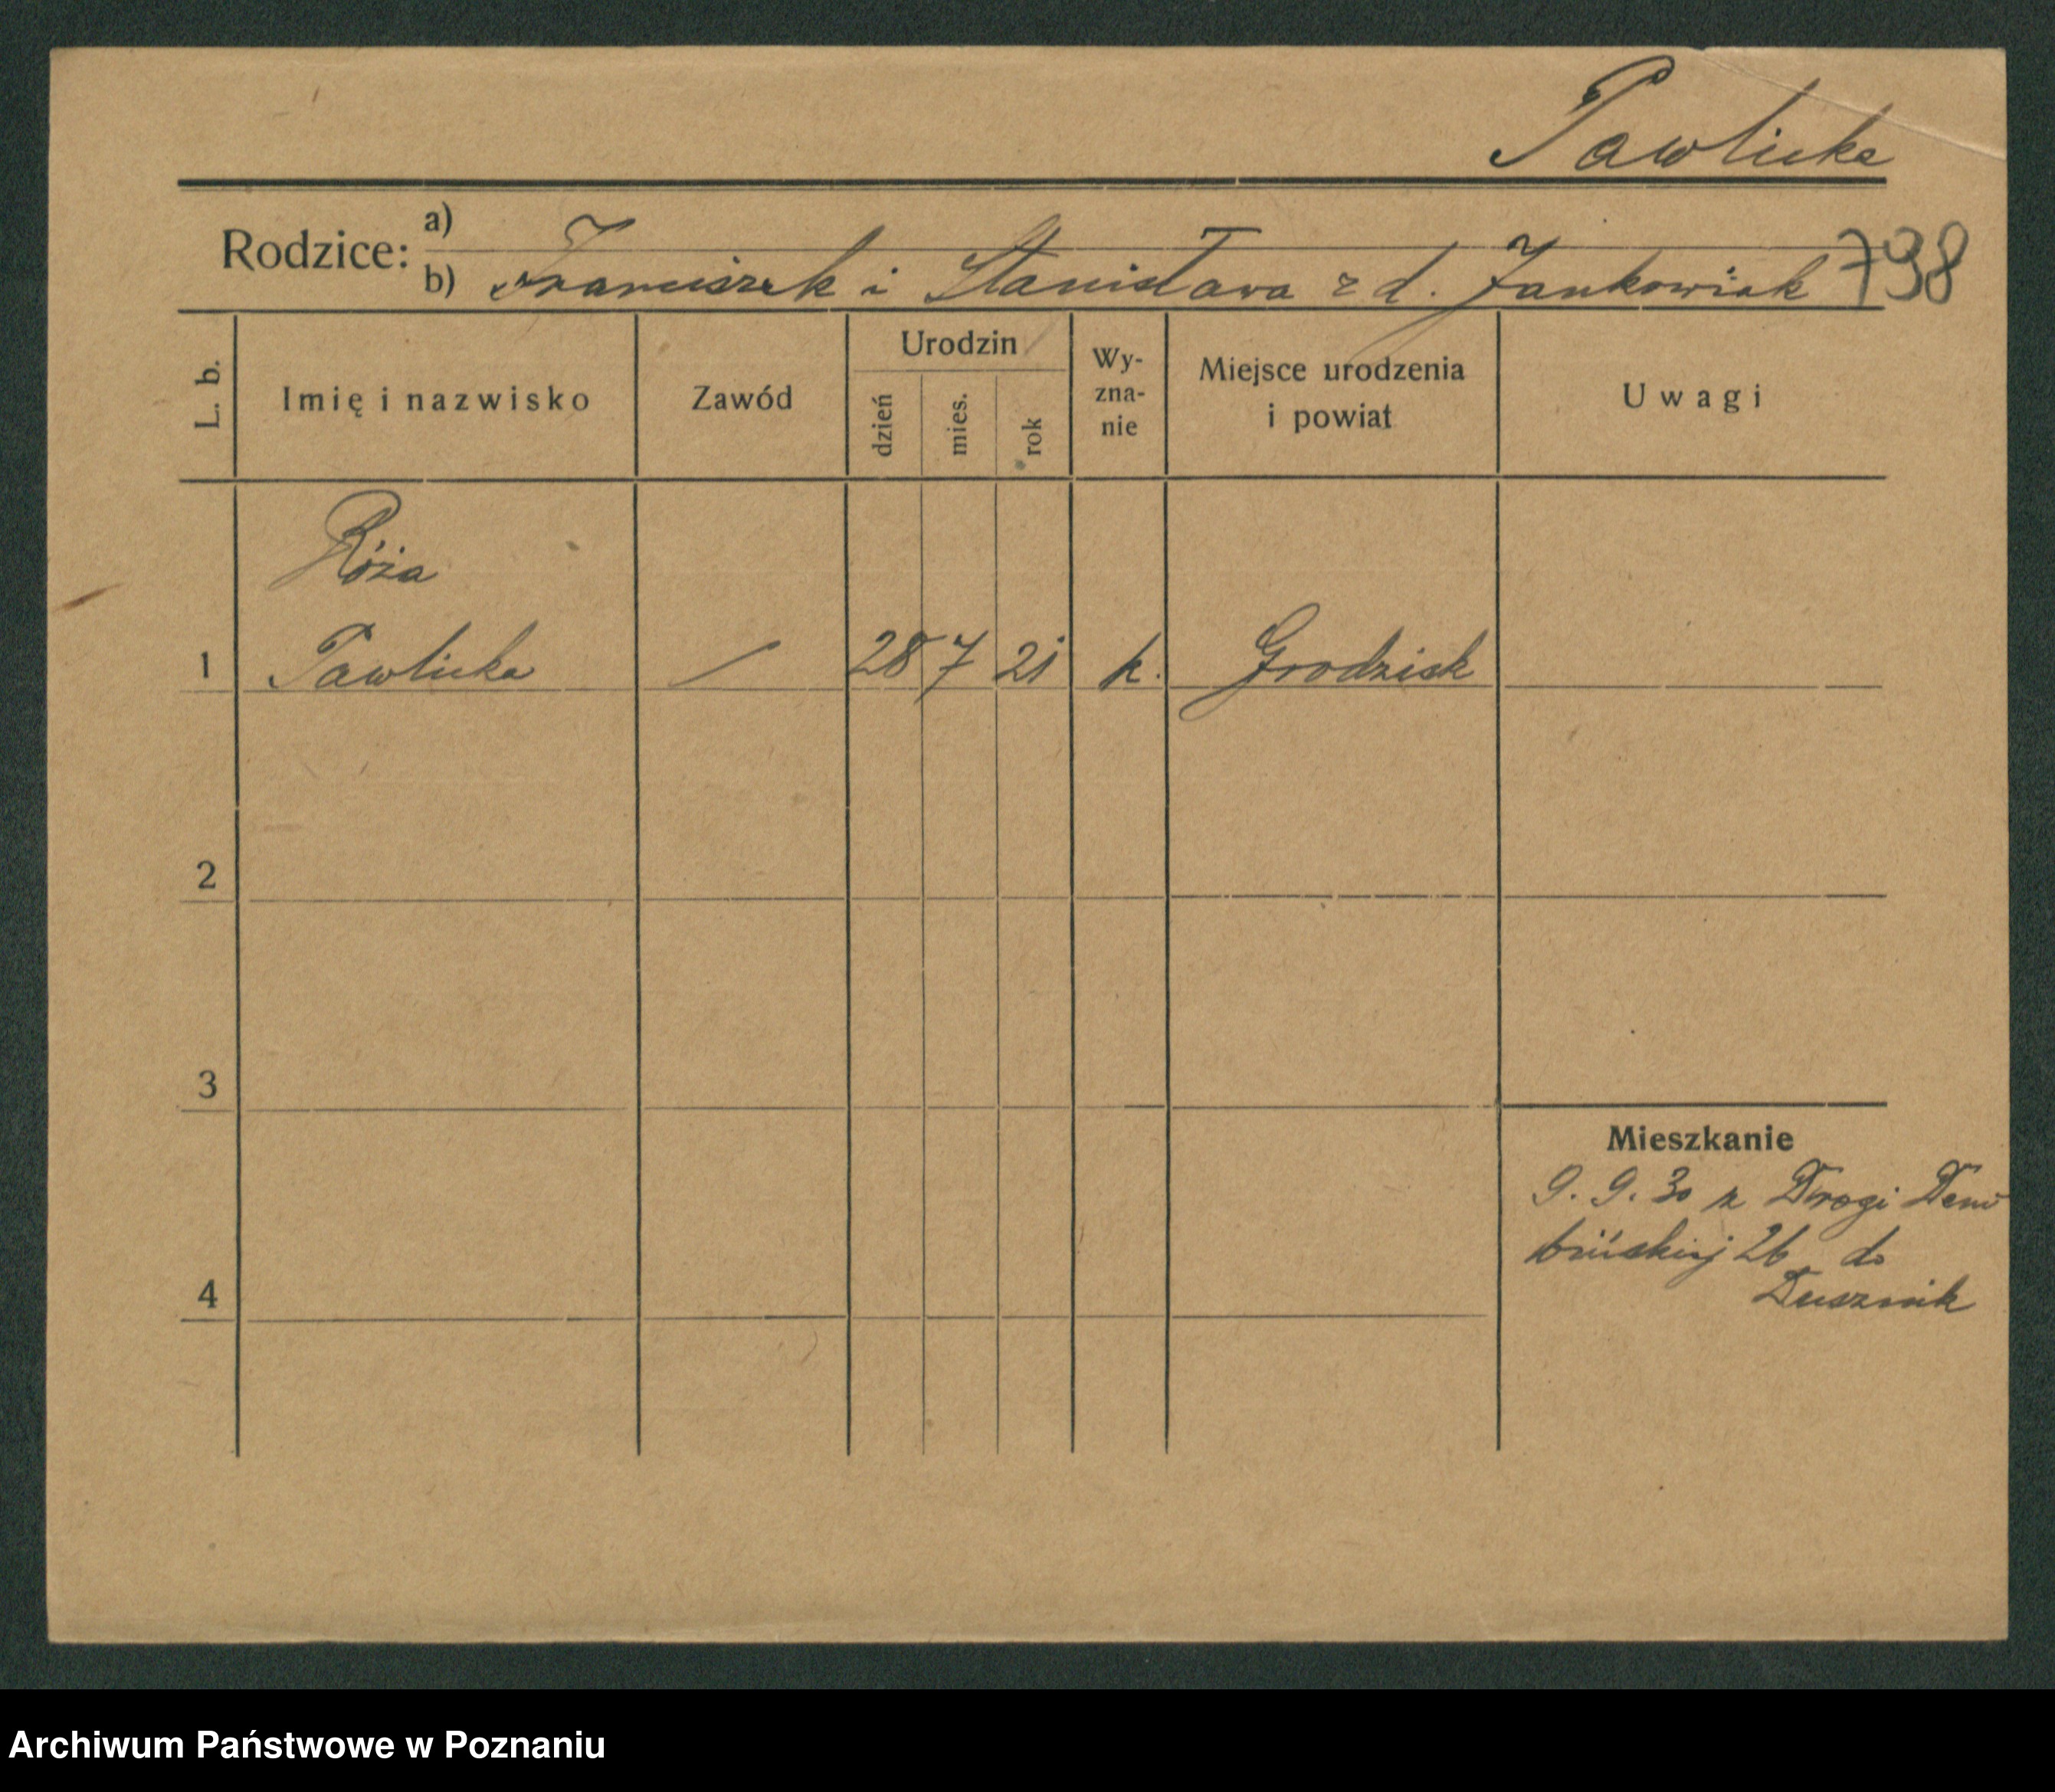 Pawlicka
Rodzice: a)
b) Franciszek i Stanisława z d. Jankowiak 798
L. b.
Imię i nazwisko
Zawód
Urodzin
dzień
mies.
rok
Wy-
zna-
nie
Miejsce urodzenia
i powiat
Uwagi
Róża
1 Pawlicka / 28 7 21 k. Grodzisk
2
3
Mieszkanie
9. 9. 30 z Drogi Dem
bińskiej 26 do
4 Dusznik
Archiwum Państwowe w Poznaniu